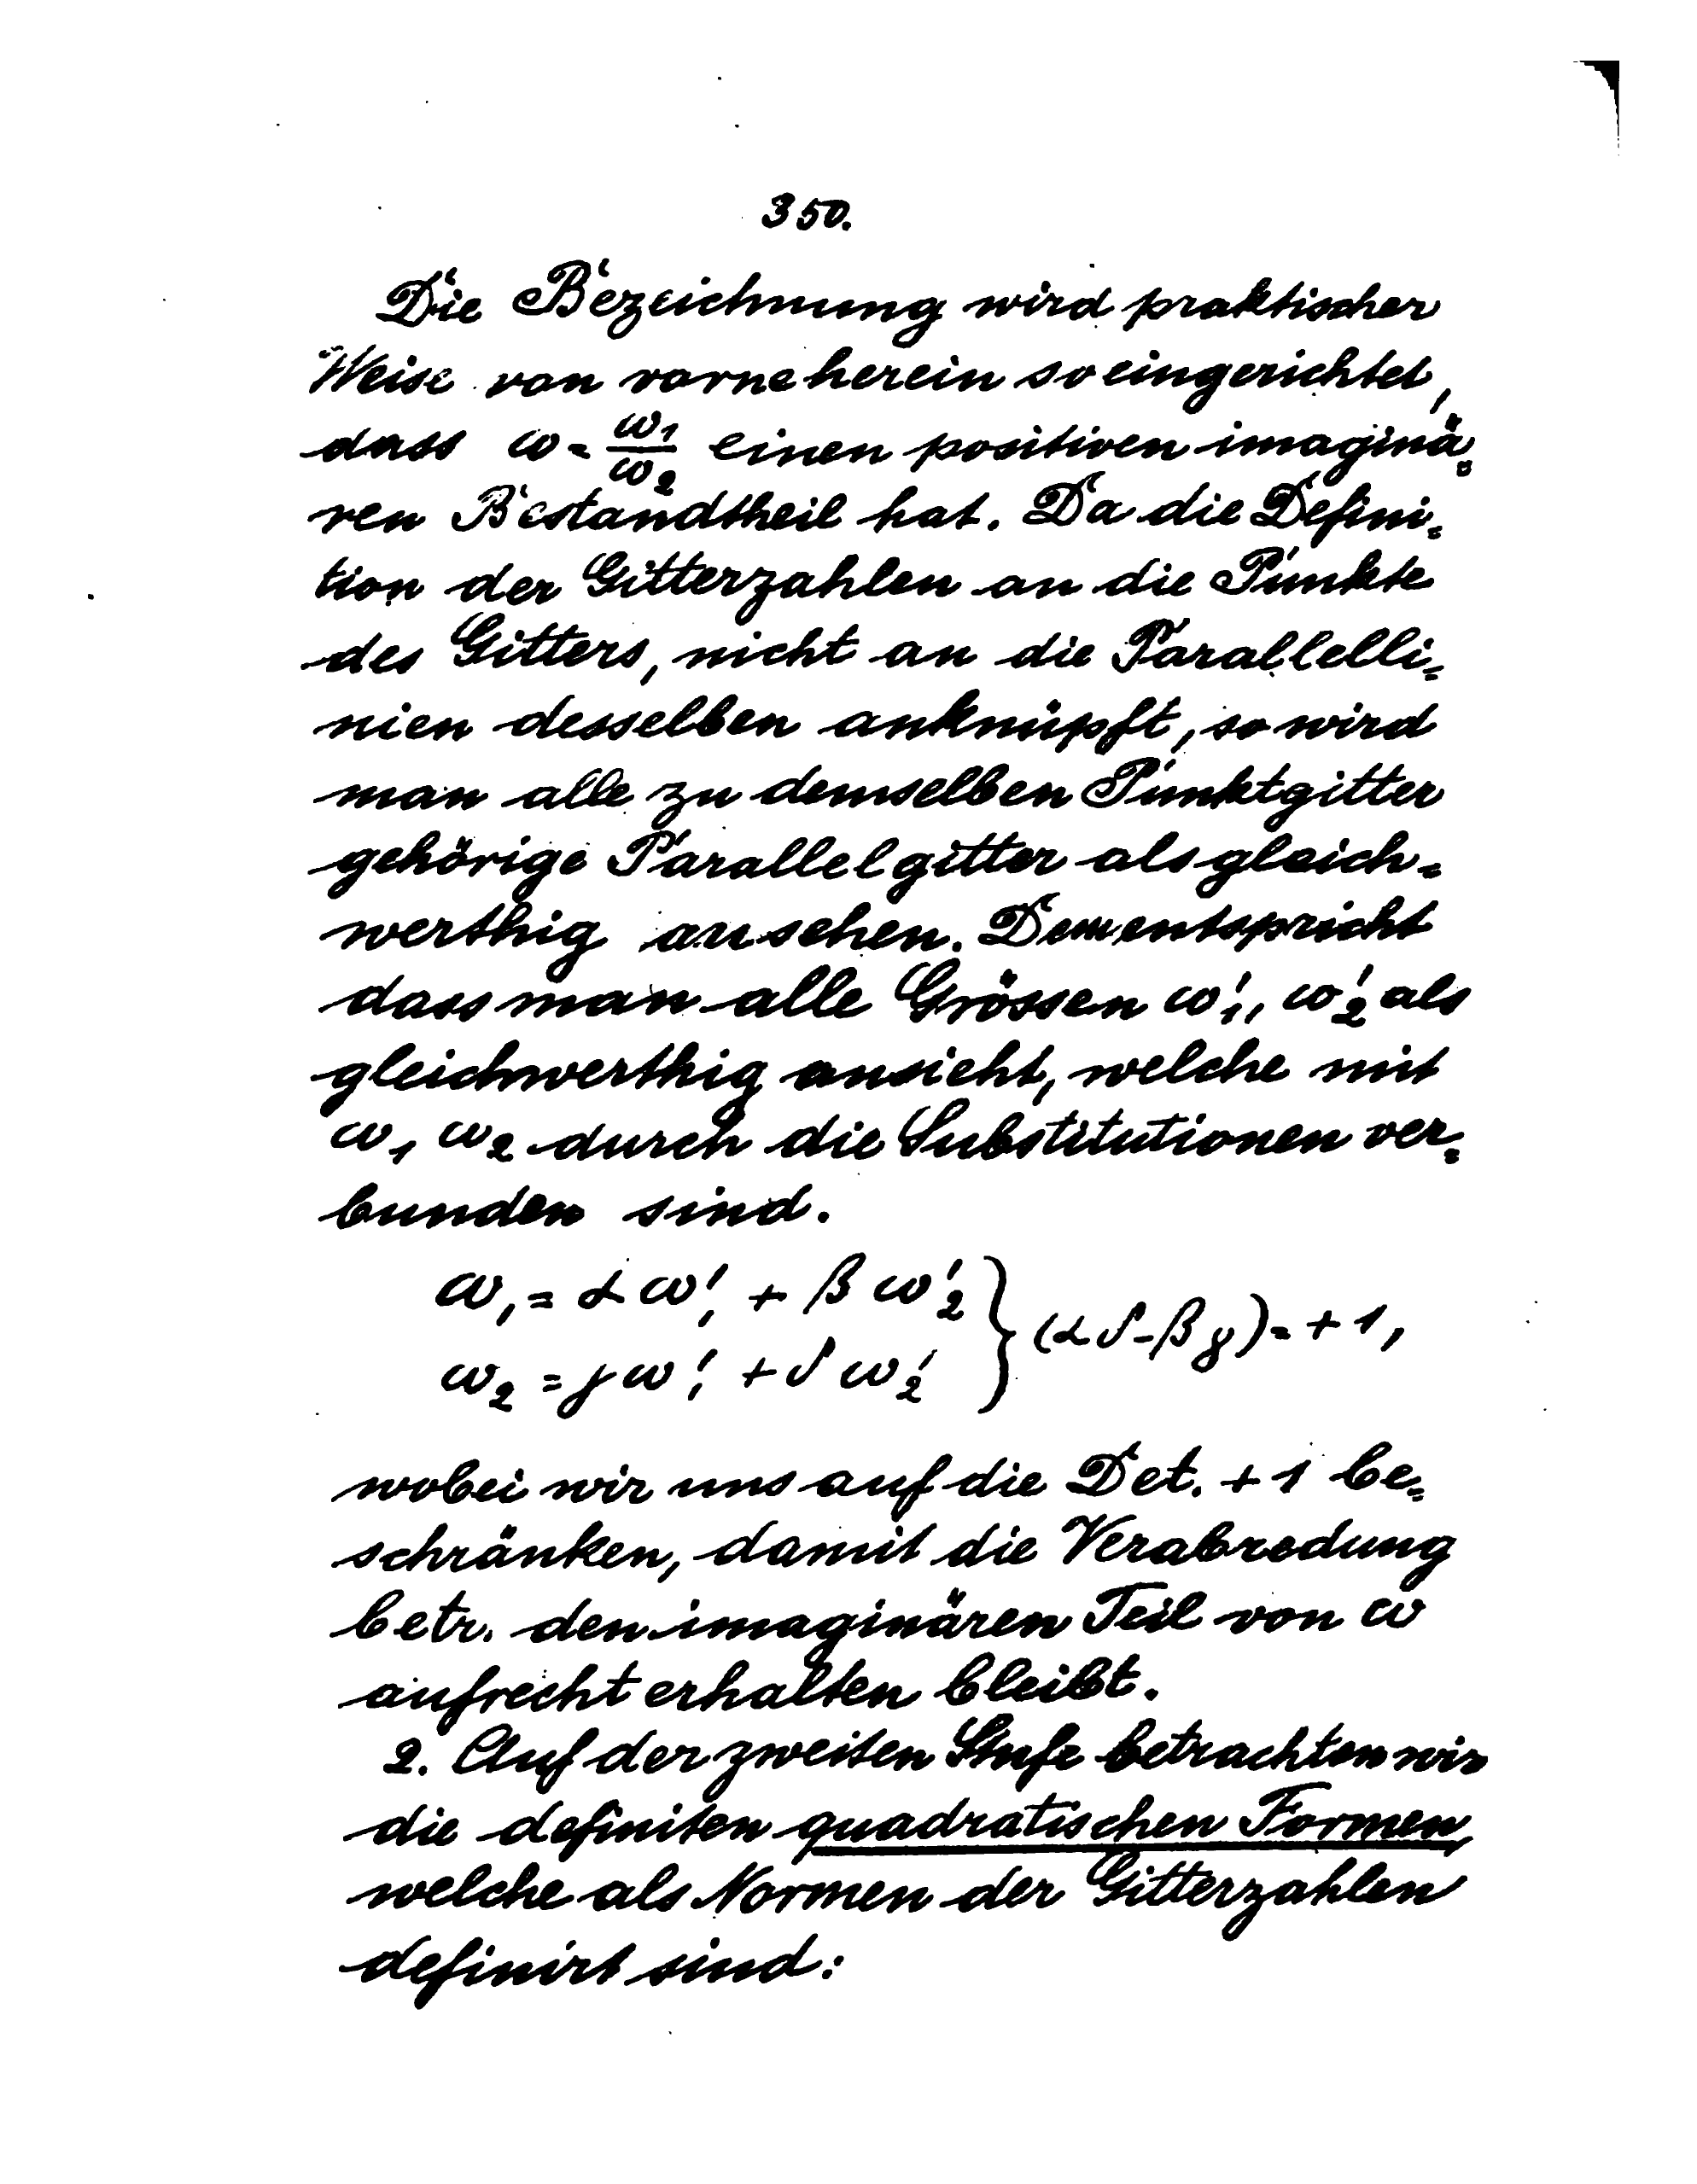 350.
Die Bezeichnung wird praktischer
Weise von vorne herein so eingerichtet,
dass ω = ω₁/ω₂ einen positiven imaginä=
ren Bestandtheil hat. Da die Defini=
tion der Gitterzahlen an die Punkte
des Gitters, nicht an die Parallelli=
nien desselben anknüpft, so wird
man alle zu demselben Punktgitter
gehörige Parallelgitter als gleich=
werthig ansehen. Dem entspricht
dass man alle Grössen ω₁', ω₂' als
gleichwerthig ansieht, welche mit
ω₁ ω₂ durch die Substitutionen ver=
bunden sind.
ω₁ = α ω₁' + β ω₂' } (αδ-βγ) = + 1,
ω₂ = γ ω₁' + δ ω₂'
wobei wir uns auf die Det. + 1 be=
schränken, damit die Verabredung
betr. den imaginären Teil von ω
aufrecht erhalten bleibt.
2. Auf der zweiten Stufe betrachten wir
die definiten quadratischen Formen,
welche als Normen der Gitterzahlen
definirt sind: